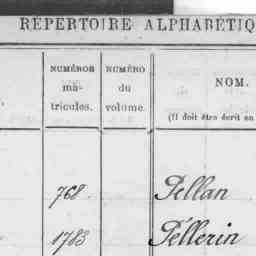 RÉPERTOIRE ALPHABÉTIQ
NUMÉROS
ma-
tricules.
NUMÉRO
du
volume.
NOM.
(Il doit être écrit en
768. Pellan
1783 Péllerin